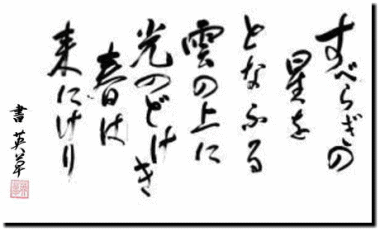 すべらぎの
星を
となふる
雲の上に
光のどけき
春は
来にけり
書 英草